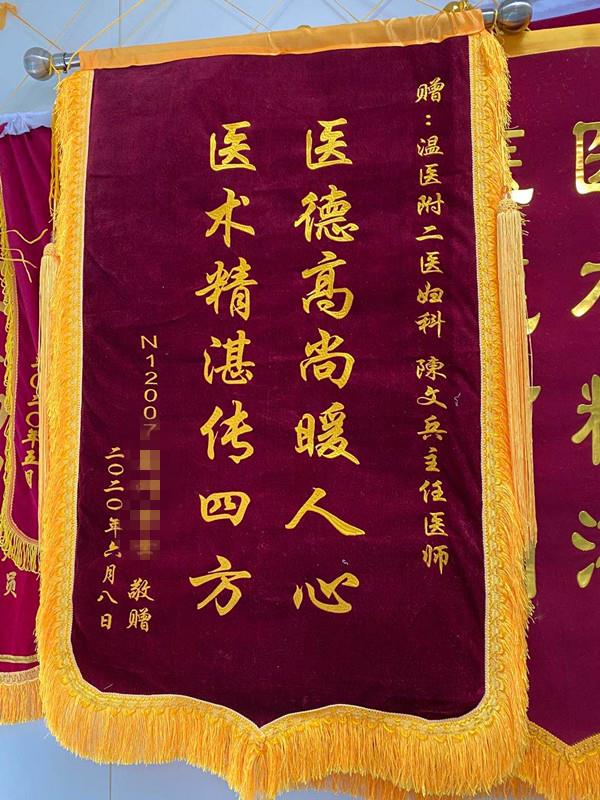 赠：温医附二医妇科 陳文兵主任医师
医德高尚暖人心
医术精湛传四方
N12007
敬赠
二〇二〇年六月八日
医术精湛
二〇二〇年五
员